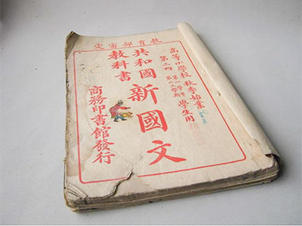 教育部審定
高等小學校秋季始業
學生用
共和國
教科書
新國文
商務印書館發行